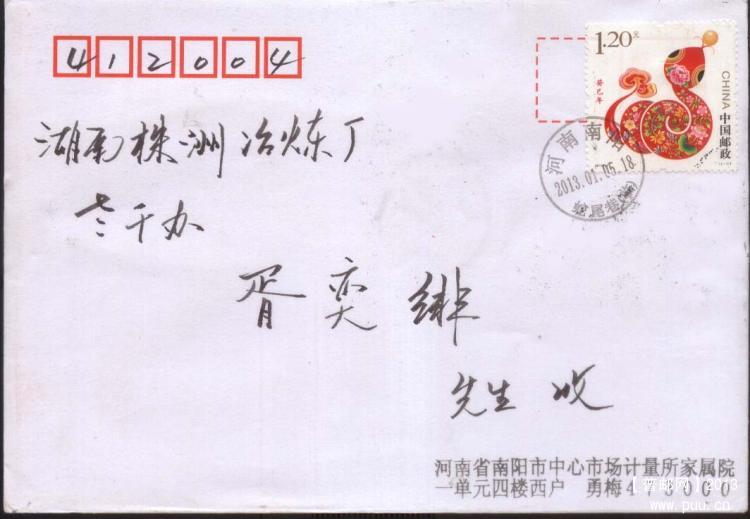 412004
1.20元
癸巳年
CHINA
中国邮政
河南南
2013.01.05.18
蛇尾巷
湖南株洲冶炼厂
老干办
胥奕绯
先生 收
河南省南阳市中心市场计量所家属院
一单元四楼西户 勇梅4 3000
【晋邮网】2013
www.puu.cn